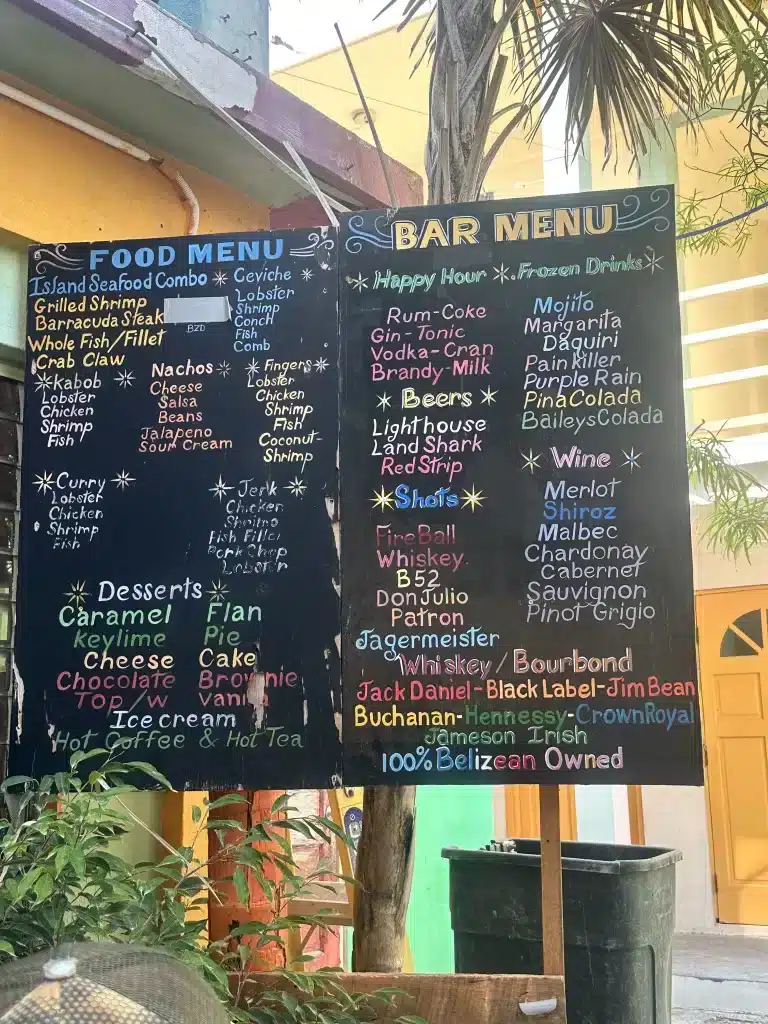 FOOD MENU
Island Seafood Combo
Grilled Shrimp
Barracuda Steak
BZD
Whole Fish/Fillet
Crab Claw
Ceviche
Lobster
Shrimp
Conch
Fish
Comb
Kabob
Lobster
Chicken
Shrimp
Fish
Nachos
Cheese
Salsa
Beans
Jalapeno
Sour Cream
Fingers
Lobster
Chicken
Shrimp
Fish
Coconut-
Shrimp
Curry
Lobster
Chicken
Shrimp
Fish
Jerk
Chicken
Shrimp
Fish Fillet
Pork Chop
Lobster
Desserts
Caramel Flan
Keylime Pie
Cheese Cake
Chocolate Brownie
Top/w vanilla
Ice cream
Hot Coffee & Hot Tea
BAR MENU
Happy Hour
Rum-Coke
Gin-Tonic
Vodka-Cran
Brandy-Milk
Beers
Lighthouse
Land Shark
Red Strip
Shots
FireBall
Whiskey
B52
Don Julio
Patron
Jagermeister
Frozen Drinks
Mojito
Margarita
Daguiri
Painkiller
Purple Rain
PinaColada
BaileysColada
Wine
Merlot
Shiroz
Malbec
Chardonay
Cabernet
Sauvignon
Pinot Grigio
Whiskey/Bourbond
Jack Daniel-Black Label-Jim Bean
Buchanan-Hennessy-CrownRoyal
Jameson Irish
100% Belizean Owned